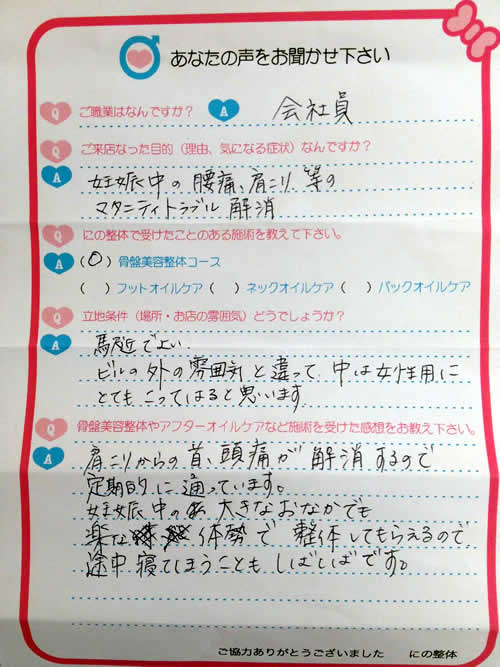 あなたの声をお聞かせ下さい
Q ご職業はなんですか? A 会社員
Q ご来店なった目的(理由、気になる症状)なんですか?
A 妊娠中の腰痛、肩こり、等の
マタニティトラブル解消
Q にの整体で受けたことのある施術を教えて下さい。
A (○)骨盤美容整体コース
( )フットオイルケア( )ネックオイルケア( )バックオイルケア
Q 立地条件(場所・お店の雰囲気)どうでしょうか?
A 馬近でよい.
ビルの外の雰囲気と違って、中は女性用に
とてもこってはると思います
Q 骨盤美容整体やアフターオイルケアなど施術を受けた感想をお教え下さい。
A 肩こりからの首、頭痛が解消するので
定期的に通っています。
妊娠中の大きなおなかでも
楽な体勢で整体してもらえるので、
途中寝てしまうこともしばしばです。
ご協力ありがとうございました にの整体